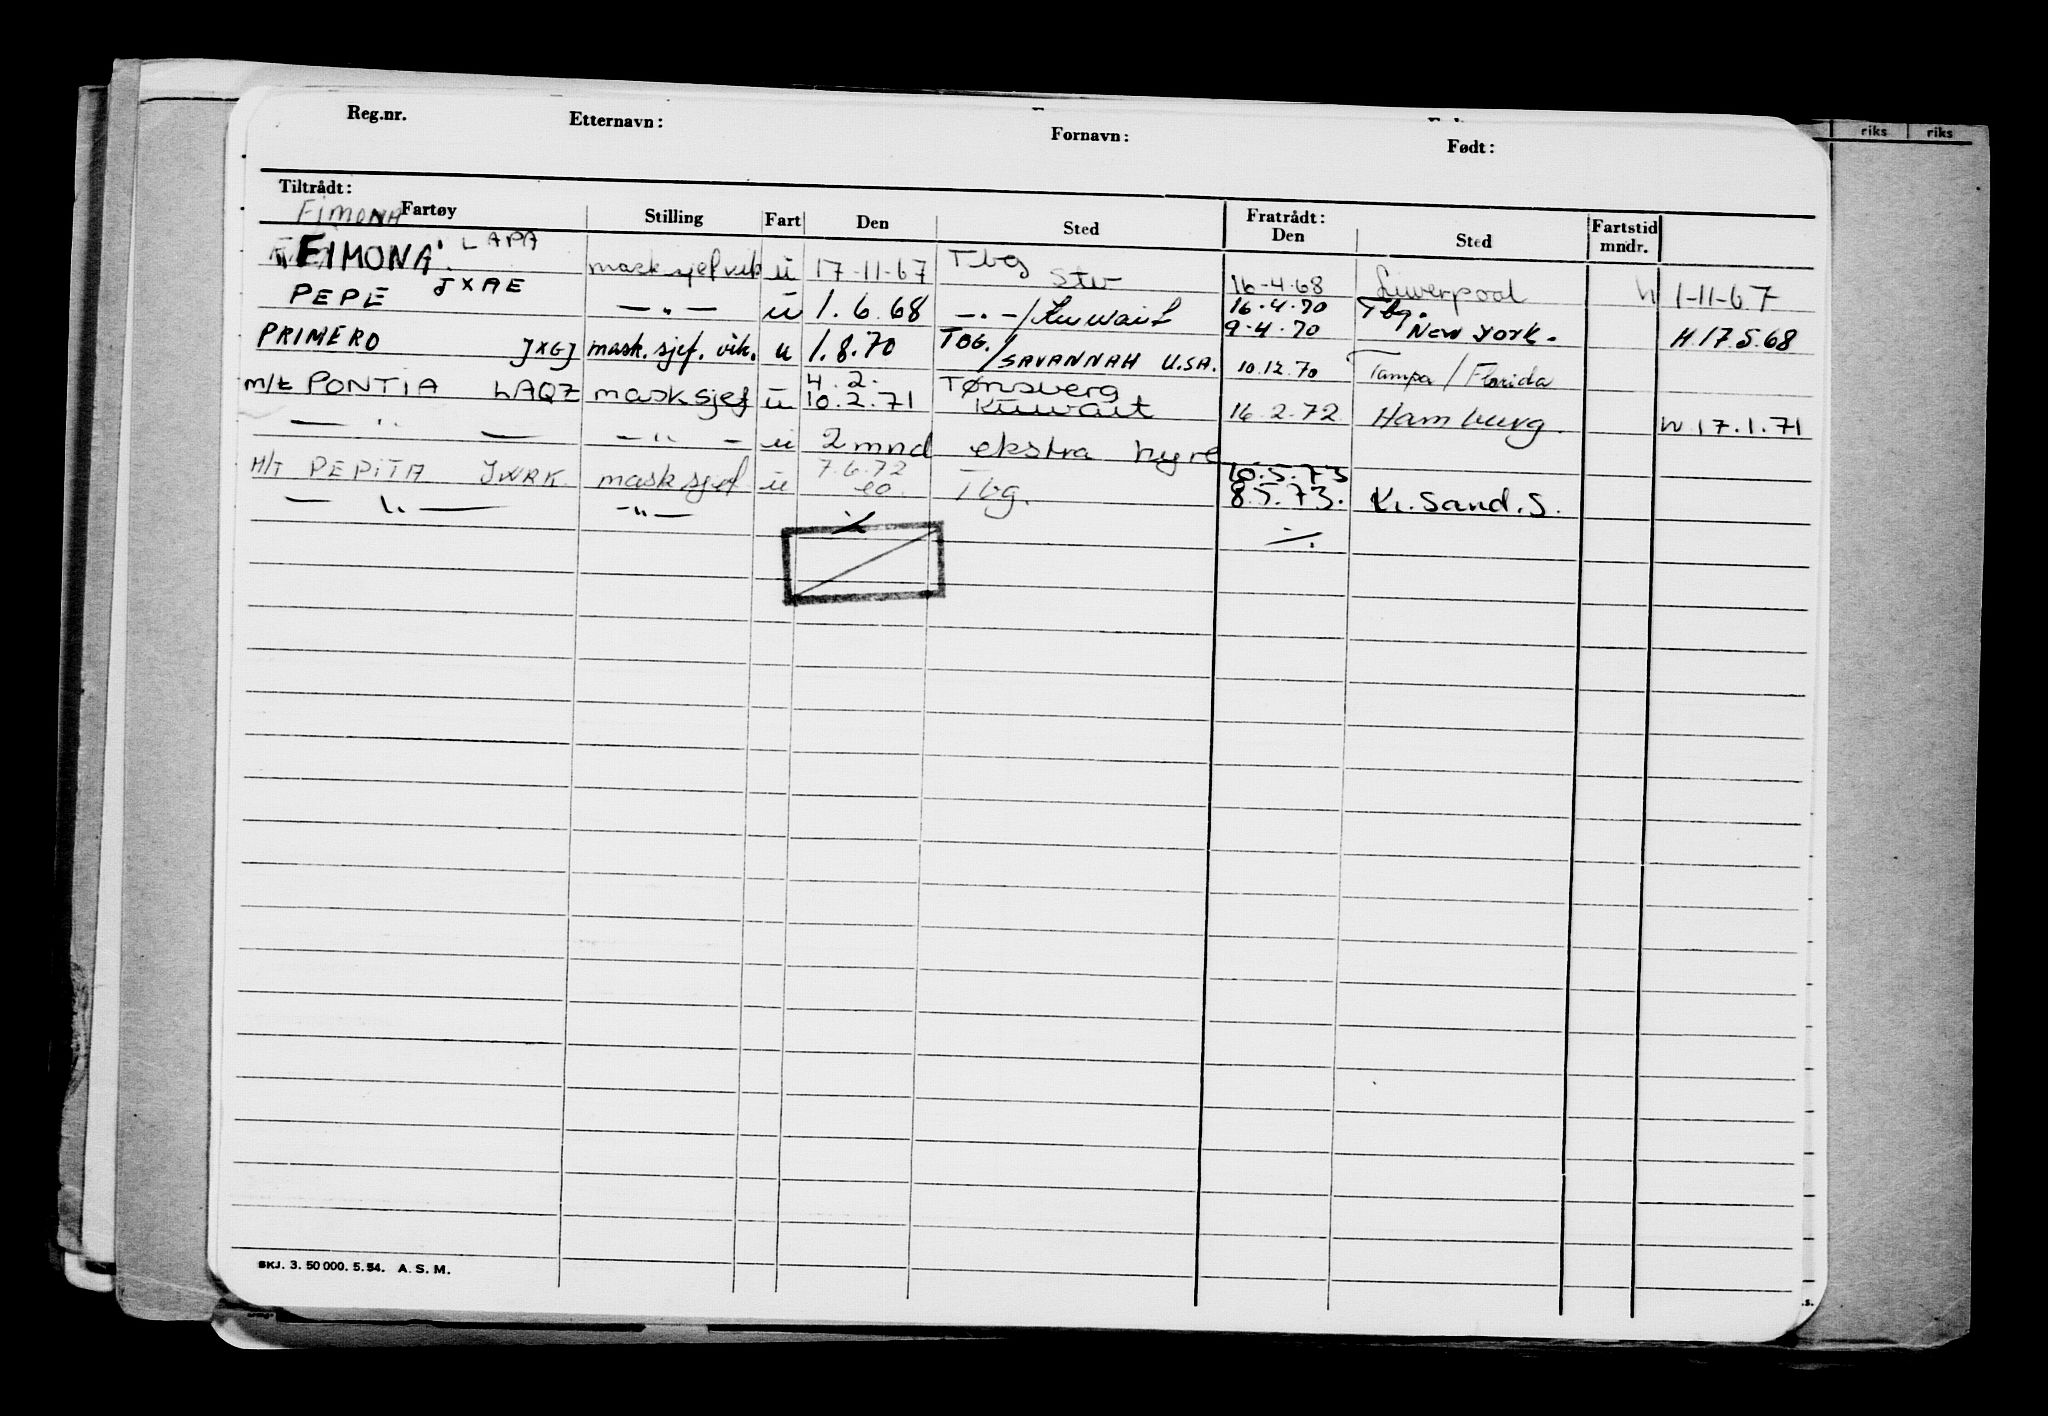 riks riks
Reg.nr. Etternavn: Fornavn: Født:
Tiltrådt: Fratrådt:
Fimona
Fartøy Stilling Fart Den Sted Den Sted Fartstid mndr.
FIMONA LAPA mask sjef vik u 17-11-67 Tbg Stv 16-4-68 Liverpool 1-11-67
PEPE JXAE — " — u 1.6.68 — " — / Kuwait 16.4.70 9.4.70 Tbg. New York. H 17.5.68
PRIMERO JXGJ mask. sjef. vik. u 1.8.70 TBG. / SAVANNAH U.SA. 10.12.70 Tampa / Florida
m/t PONTIA LAQZ masksjef u 4.2. 10.2.71 Tønsberg Kuwait 16.2.72 Hamburg. 17.1.71
— " — — " — u 2 mnd ekstra hyre
M/T PEPITA JWRK masksjef u 7.6.72 Tbg. 10.5.73 8.5.73. Kr. Sand. S.
— " — — " — ./. ./.
SKJ. 3. 50 000. 5. 54. A. S. M.